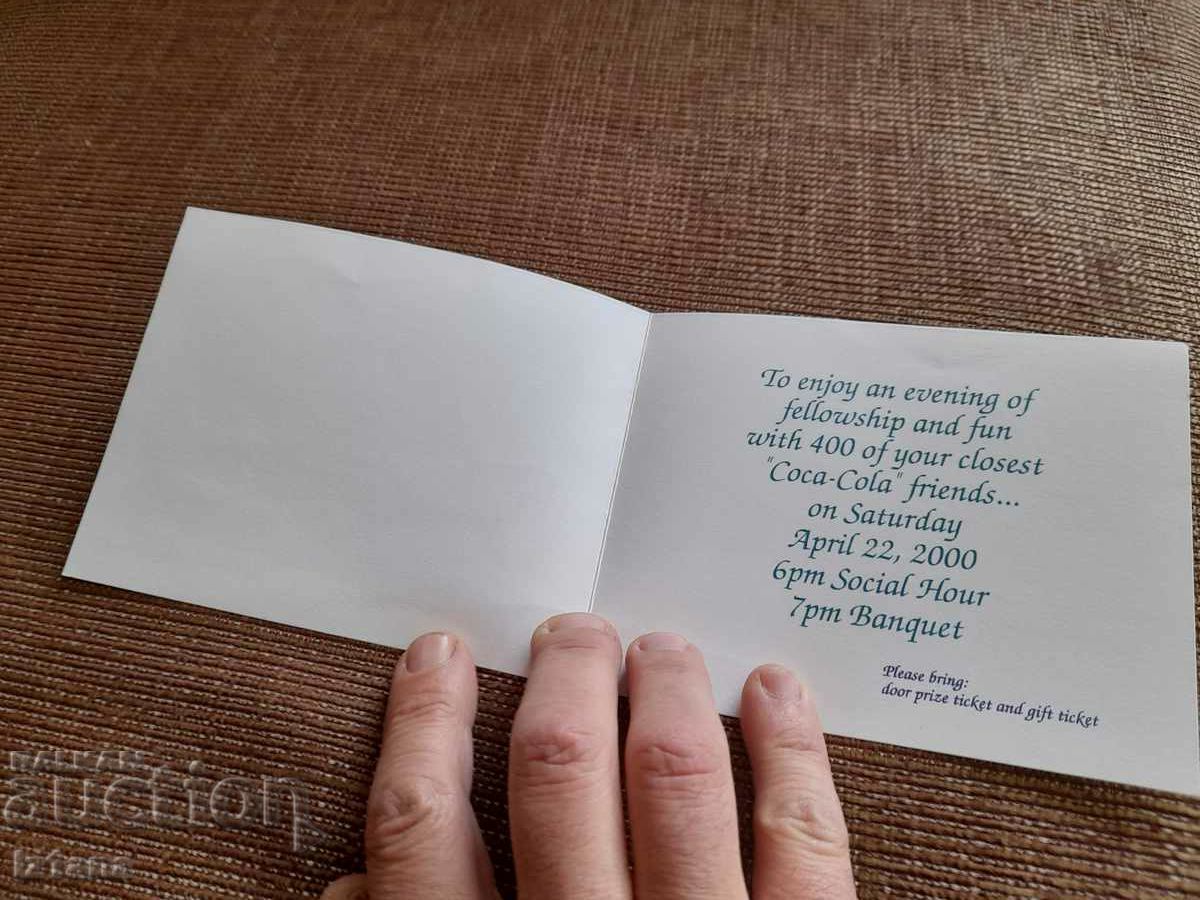 To enjoy an evening of
fellowship and fun
with 400 of your closest
"Coca-Cola" friends...
on Saturday
April 22, 2000
6pm Social Hour
7pm Banquet
Please bring:
door prize ticket and gift ticket
BALKAN
auction
Iztans